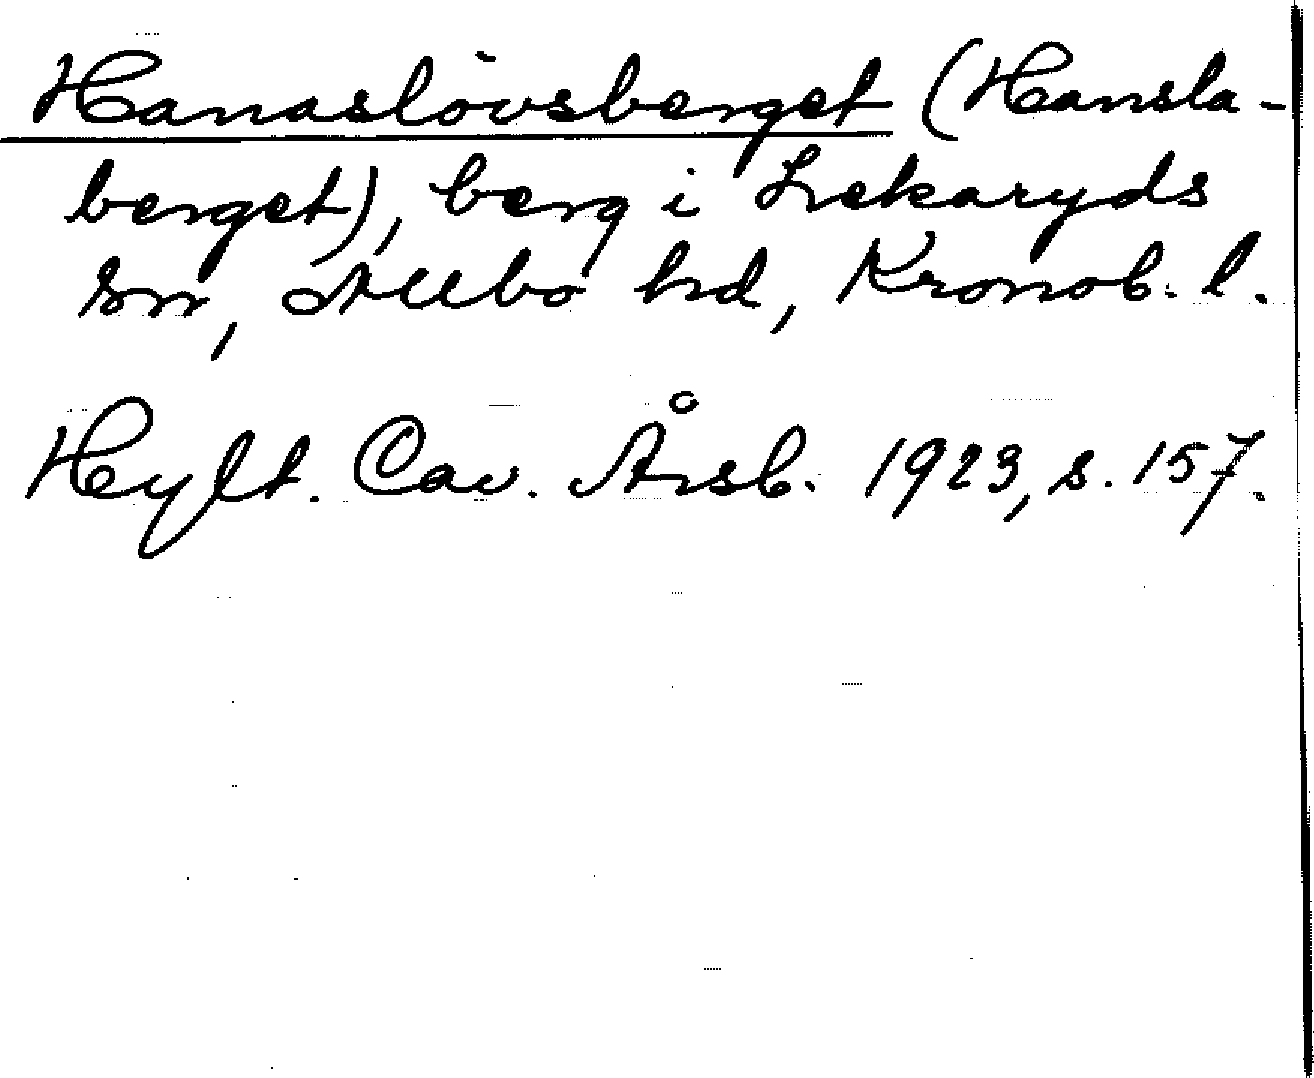 Hanaslövsberget (Hansla-
berget), berg i Lekaryds
sn, Allbo hd, Kronob. l.
Hylt. Cav. Årsb. 1923, s. 157.